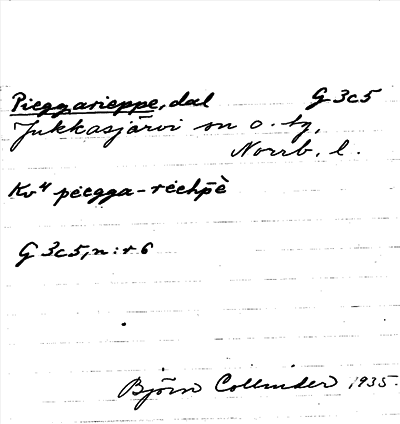 Pieggarieppe, dal G 3c5
Jukkasjärvi sn o. tg,
Norrb. l.
Kv⁴ piegga-riehp̄è
G 3c5, n:r 6
Björn Collinder 1935.